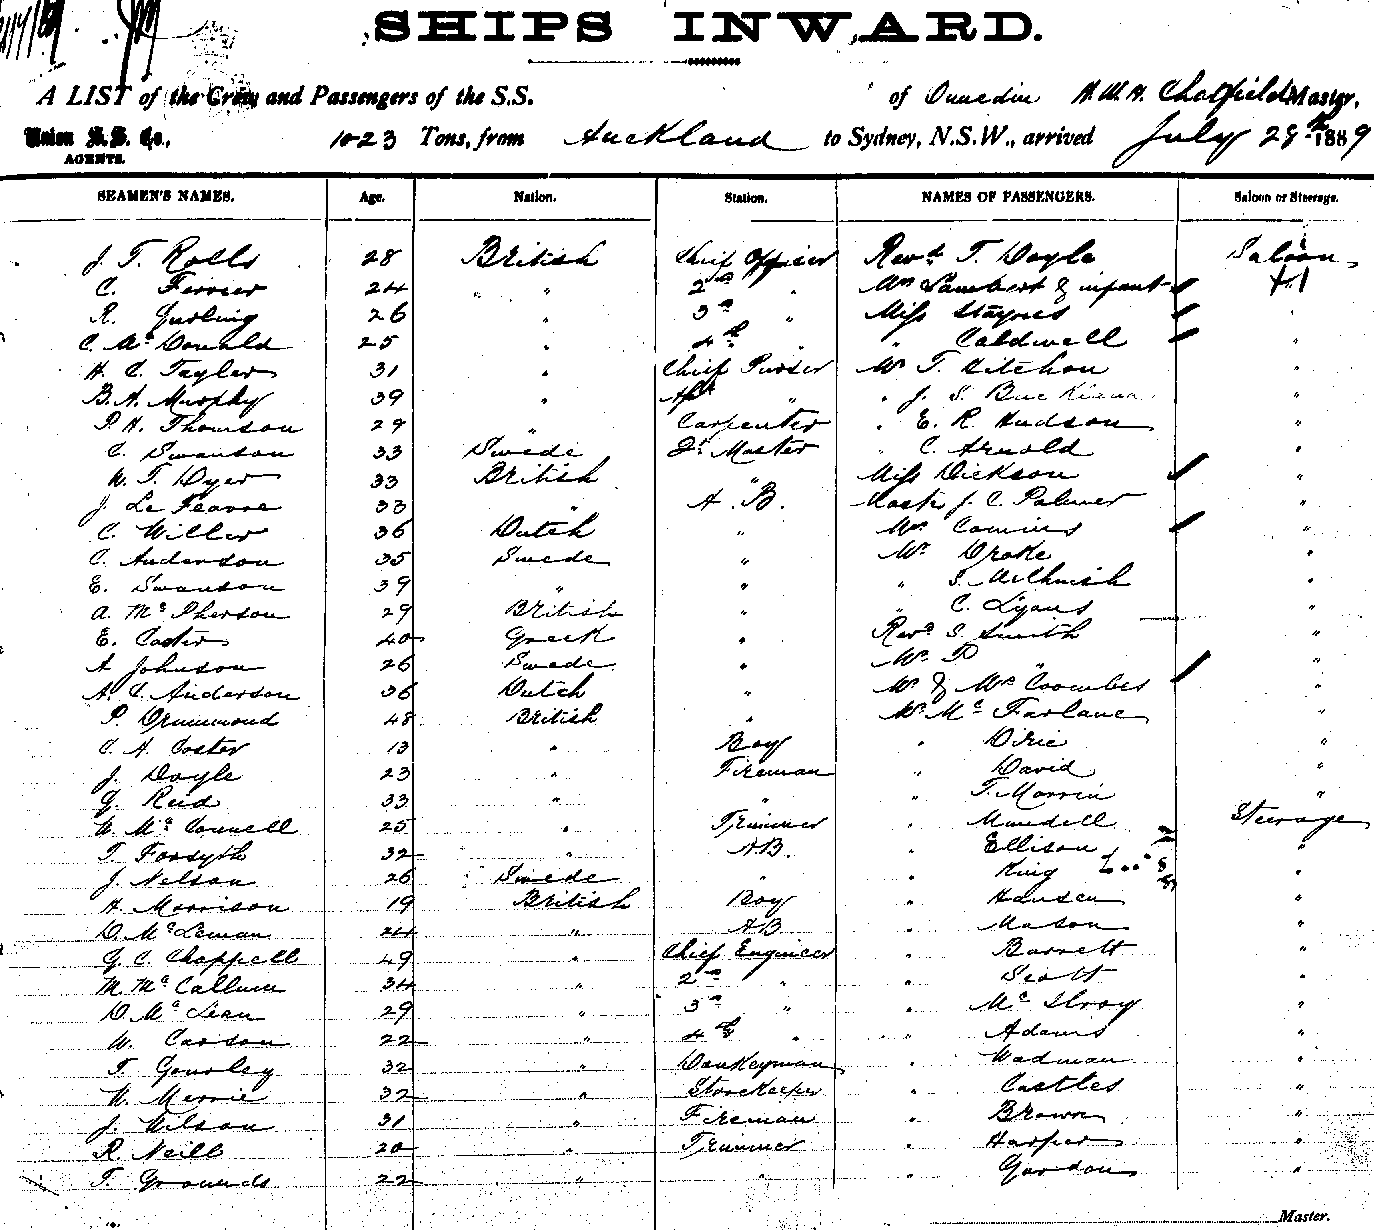 SHIPS INWARD.
A LIST of the Crew and Passengers of the S.S. of Dunedin H.W.H. Chatfield Master,
Union S.S. Co., AGENTS. 1023 Tons, from Auckland to Sydney, N.S.W., arrived July 29th 1889
SEAMEN'S NAMES. Age. Nation. Station. NAMES OF PASSENGERS. Saloon or Steerage.
J. T. Rolls 28 British Chief Officer Revd. T. Doyle Saloon
C. Ferrier 24 " " 2nd " Mrs Lambert & infant "
R. Gurling 26 " 3rd " Miss Staynes "
C. McDonald 25 " 4th " " Caldwell "
H. C. Tayler 31 " Chief Purser Mr T. Kitchen "
B. A. Murphy 39 " " " J. S. "
P. H. Thomson 29 " Carpenter " E. R. Hudson "
C. Swanson 33 Swede Qr. Master " C. Arnold "
W. T. Dyer 33 British " Miss Dickson "
J. Le Feavre 33 " A.B. Master J. C. Palmer "
C. Willer 36 Dutch " Mrs Comins "
C. Anderson 35 Swede " Mr. Drake "
E. Swanson 39 " " " S. "
A. McPherson 29 British " " C. Lyons "
E. Castor 40 Greek " Revd. S. Smith "
A Johnson 26 Swede " Mr. D " "
A. C. Anderson 36 Dutch " Mr & Mrs Coombes "
P. Drummond 48 British " Mr McFarlane "
C. A. Coster 13 " Boy " Dirie "
J. Doyle 23 " Fireman " David "
G. Reid 33 " " " T. Morrin "
W. McConnell 25 " Trimmer " Mundell Steerage
T. Forsyth 32 " AB. " Ellison "
J. Nelson 26 Swede " " King "
H. Morrison 19 British Boy " Hansen "
D. McLeman 24 " AB " Mason "
G. C. Chappell 49 " Chief Engineer " Barrett "
M. McCallum 34 " 2nd " " Scott "
D. McLean 29 " 3rd " " McIlroy "
W. Carson 22 " 4th " " Adams "
T. Gourley 32 " Donkeyman " Wadman "
W. Merrie 32 " Storekeeper " Castles "
J. Wilson 31 " Fireman " Brown "
R. Neill 20 " Trimmer " Harper "
T. Grounds 22 " " " Gordon "
Master.